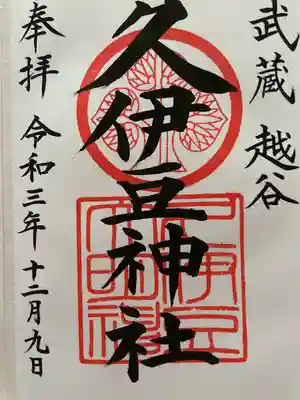 武蔵 越谷
久伊豆神社
奉拝 令和三年 十二月九日
久伊豆神社